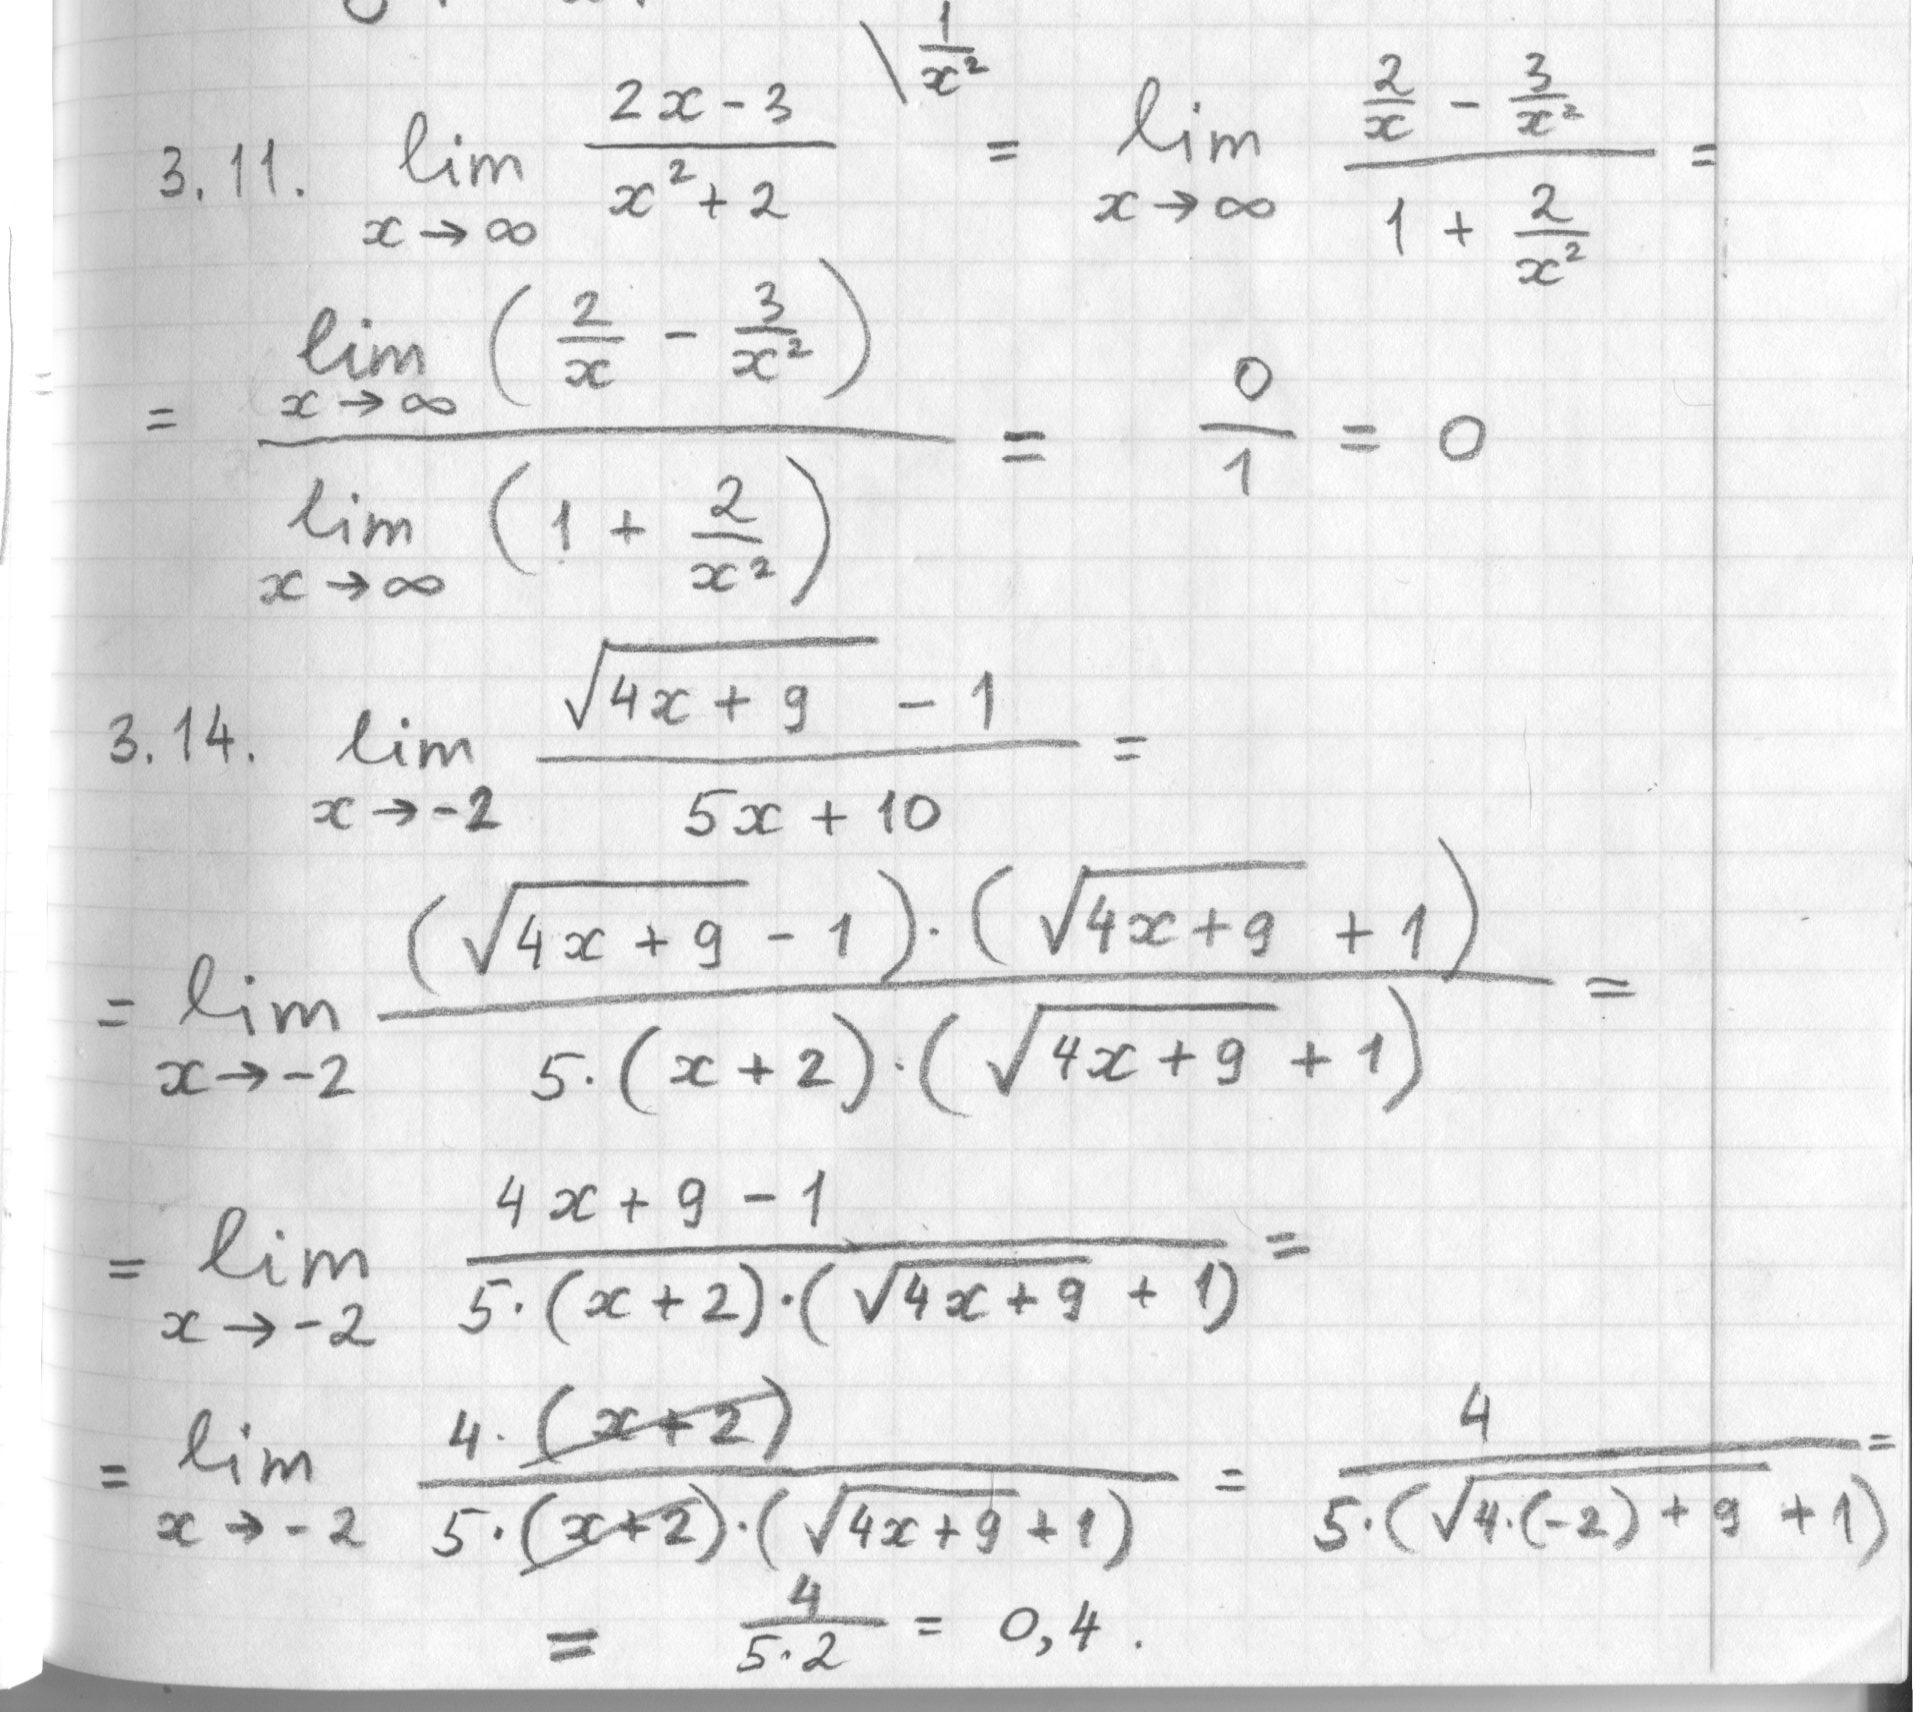 3.11. lim_{x→∞} (2x-3)/(x²+2) \ 1/x² = lim_{x→∞} (2/x - 3/x²)/(1 + 2/x²) =
= (lim_{x→∞} (2/x - 3/x²))/(lim_{x→∞} (1 + 2/x²)) = 0/1 = 0
3.14. lim_{x→-2} (√(4x+9) - 1)/(5x+10) =
= lim_{x→-2} ((√(4x+9) - 1)·(√(4x+9) + 1))/(5·(x+2)·(√(4x+9) + 1)) =
= lim_{x→-2} (4x+9-1)/(5·(x+2)·(√(4x+9) + 1)) =
= lim_{x→-2} (4·(x+2))/(5·(x+2)·(√(4x+9) + 1)) = 4/(5·(√(4·(-2)+9) + 1)) =
= 4/(5·2) = 0,4.